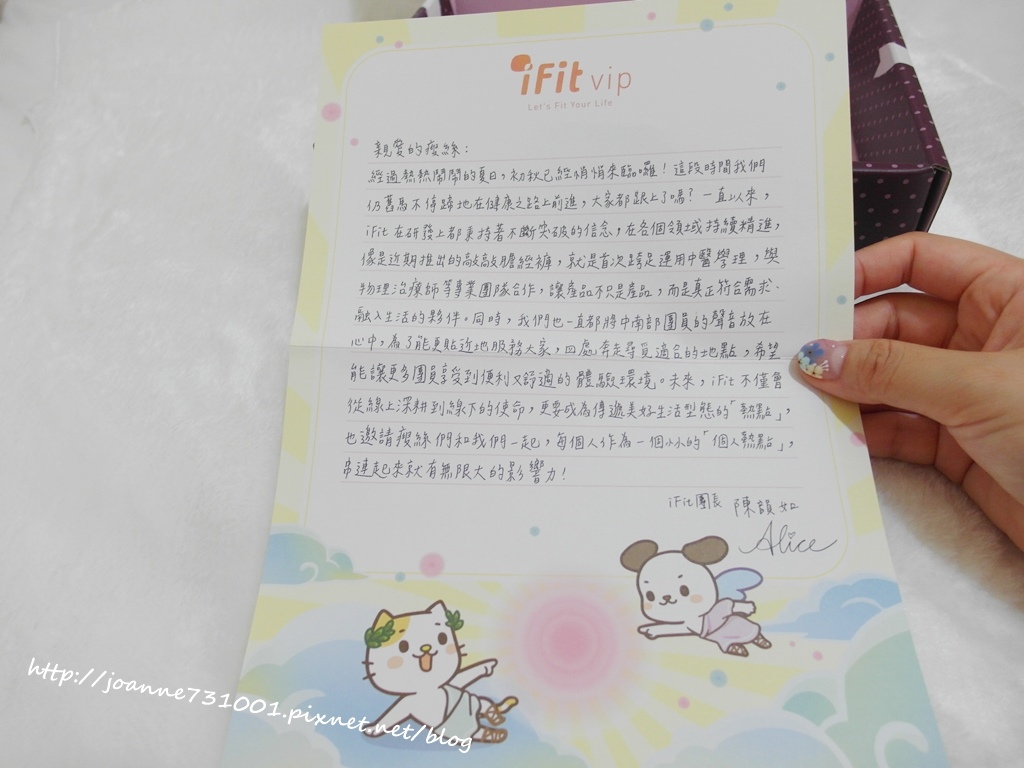 iFit vip
Let's Fit Your Life
親愛的瘦絲：
經過熱熱鬧鬧的夏日，初秋已經悄悄來臨囉！這段時間我們
仍舊馬不停蹄地在健康之路上前進，大家都跟上了嗎？一直以來，
iFit 在研發上都秉持著不斷突破的信念，在各個領域持續精進，
像是近期推出的敲敲膽經褲，就是首次跨足運用中醫學理，與
物理治療師等專業團隊合作，讓產品不只是產品，而是真正符合需求、
融入生活的夥伴。同時，我們也一直都將中南部團員的聲音放在
心中，為了能更貼近地服務大家，四處奔走尋覓適合的地點，希望
能讓更多團員享受到便利又舒適的體驗環境。未來，iFit 不僅會
從線上深耕到線下的使命，更要成為傳遞美好生活型態的「熱點」，
也邀請瘦絲們和我們一起，每個人作為一個小小的「個人熱點」，
串連起來就有無限大的影響力！
iFit團長 陳韻如
Alice
http://joanne731001.pixnet.net/blog